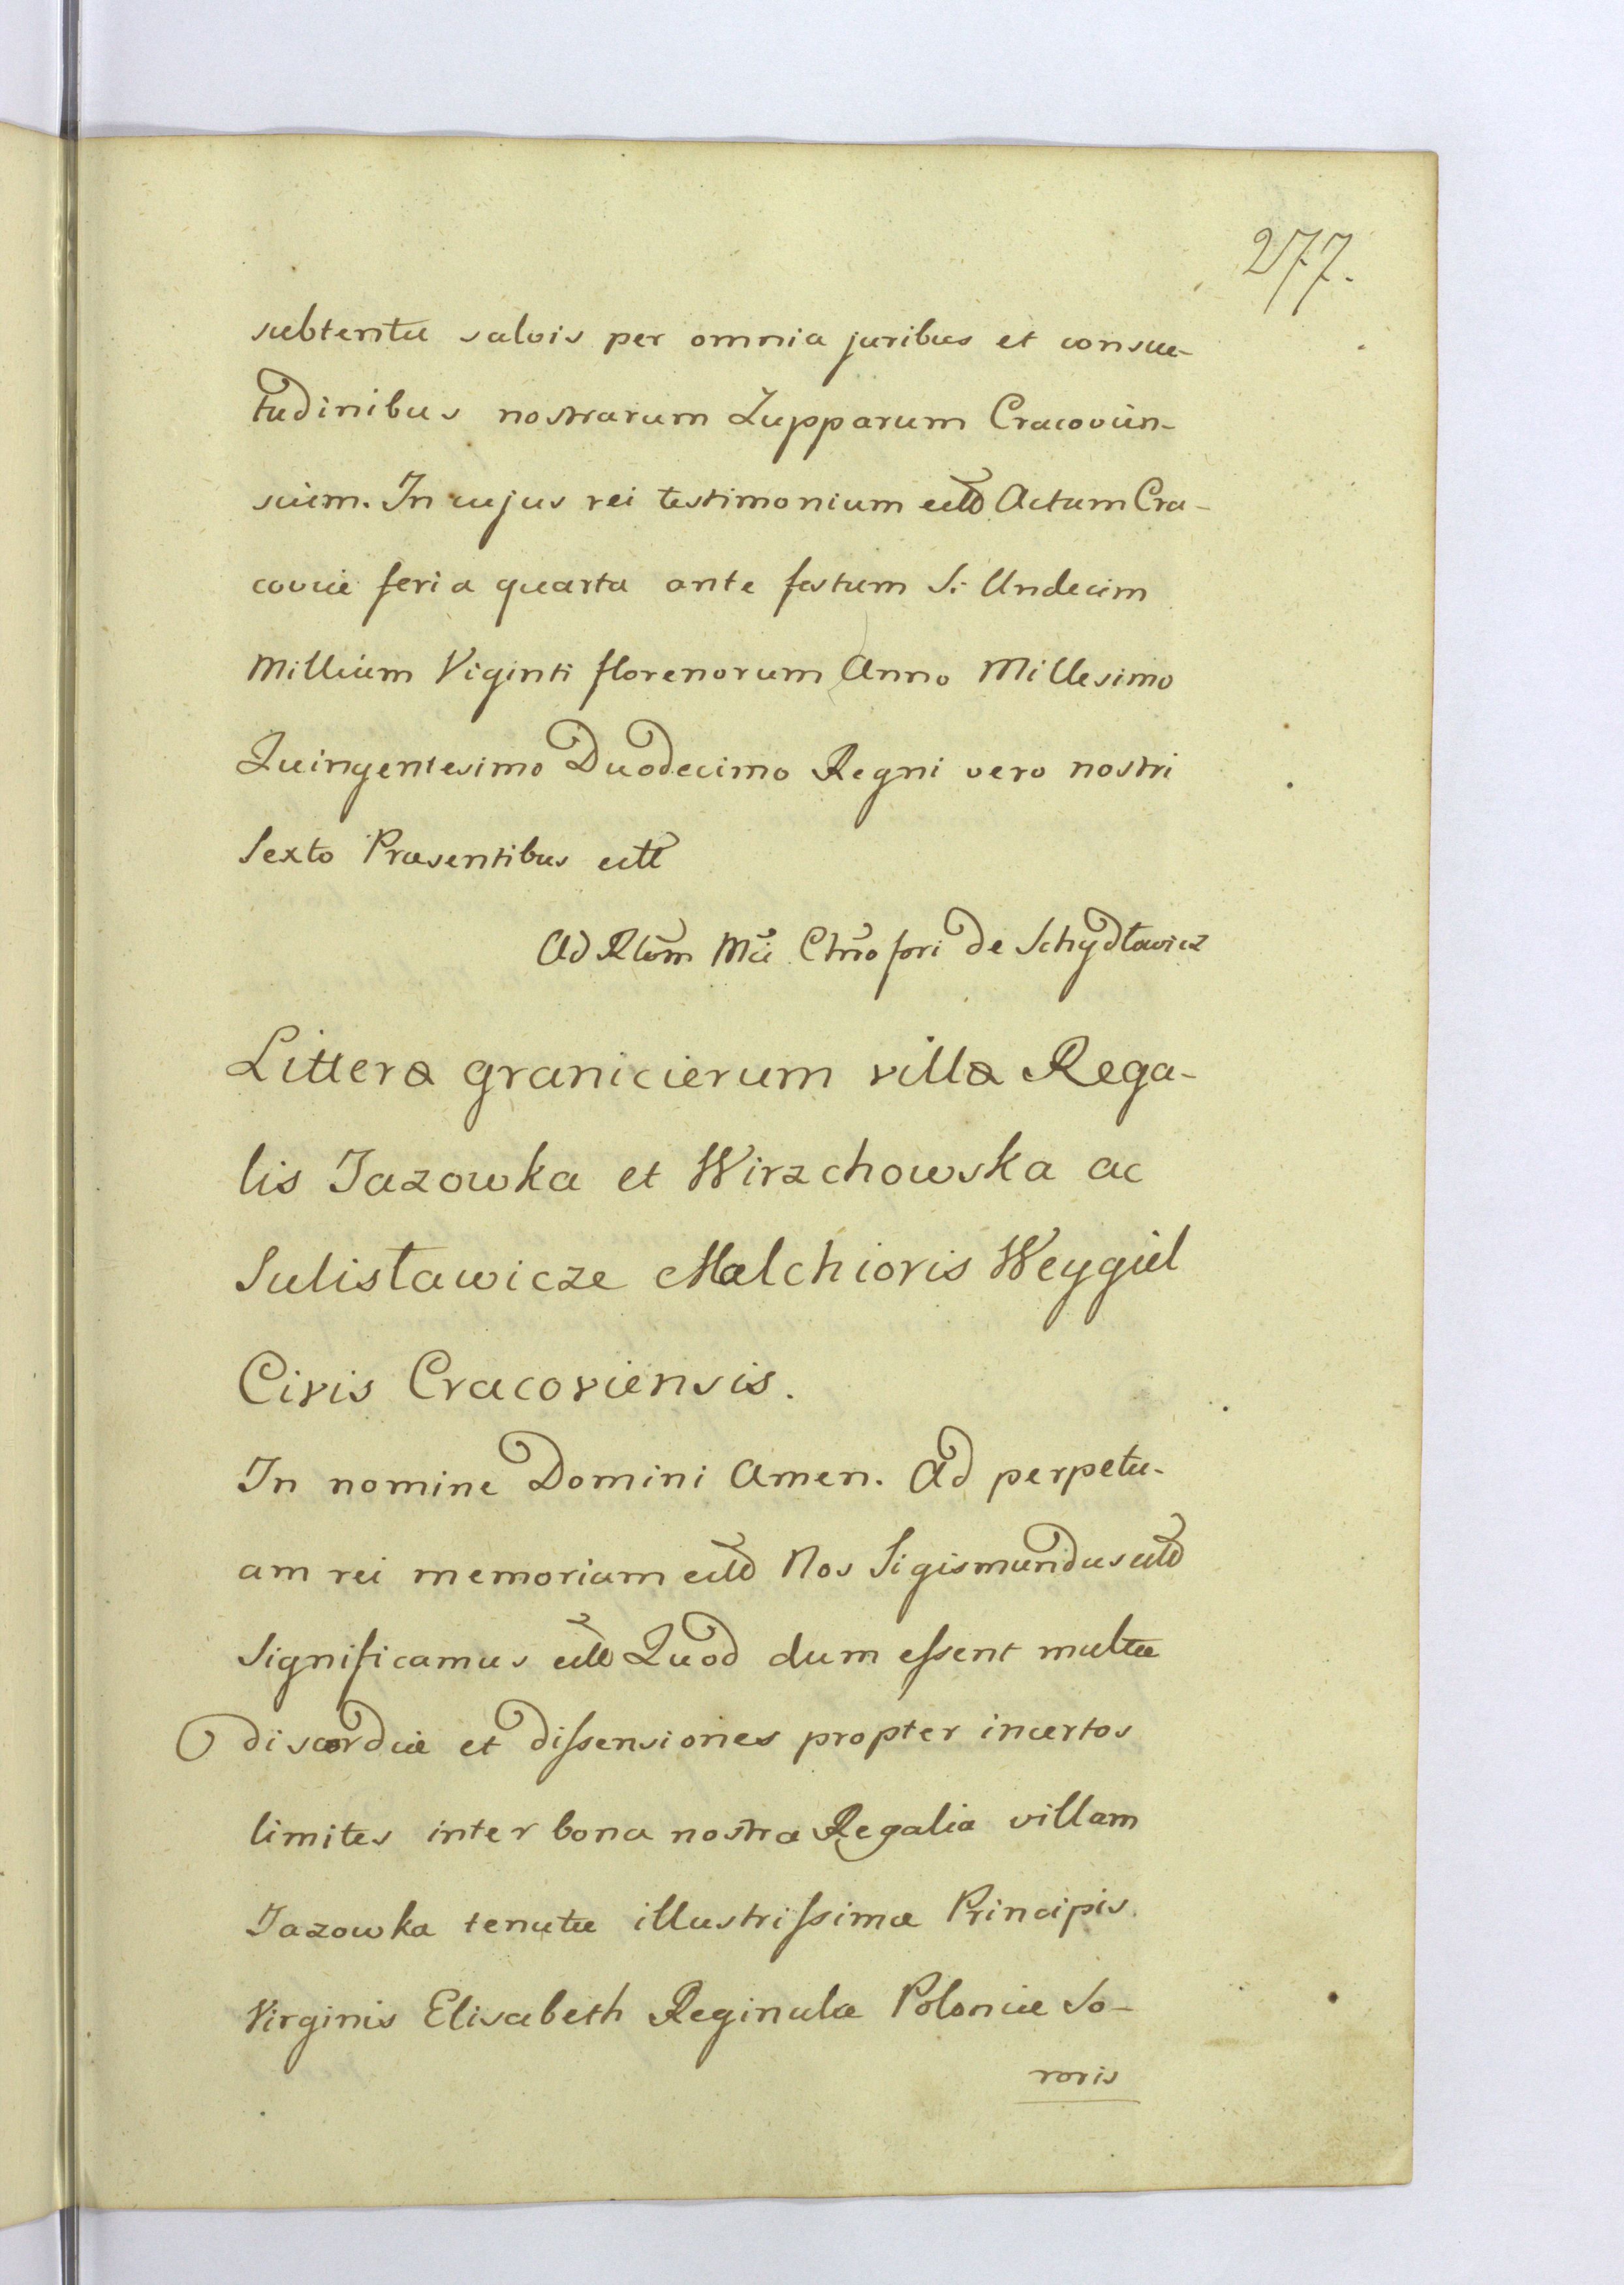 277.
subtentu salvis per omnia juribus et consue-
tudinibus nostrarum Zupparum Cracovien-
sium. In cujus rei testimonium Actum Cra-
coviæ feria quarta ante festum S: Undecim
Millium Viginti florenorum Anno Millesimo
Quingentesimo Duodecimo Regni vero nostri
Sexto Præsentibus
Ad Rlõm Mci Chrõfori de Schydłowicz
Litteræ granicierum villæ Rega-
lis Jazowka et Wirzchowska ac
Sulisławicze Melchioris Weygiel
Civis Cracoviensis.
In nomine Domini Amen. Ad perpetu-
am rei memoriam Nos Sigismundus
Significamus Quod dum eſsent multæ
discordiæ et diſsensiones propter incertos
limites inter bona nostra Regalia villam
Jazowka tenutæ illustriſsimæ Principis
Virginis Elisabeth Reginulæ Poloniæ So-
roris